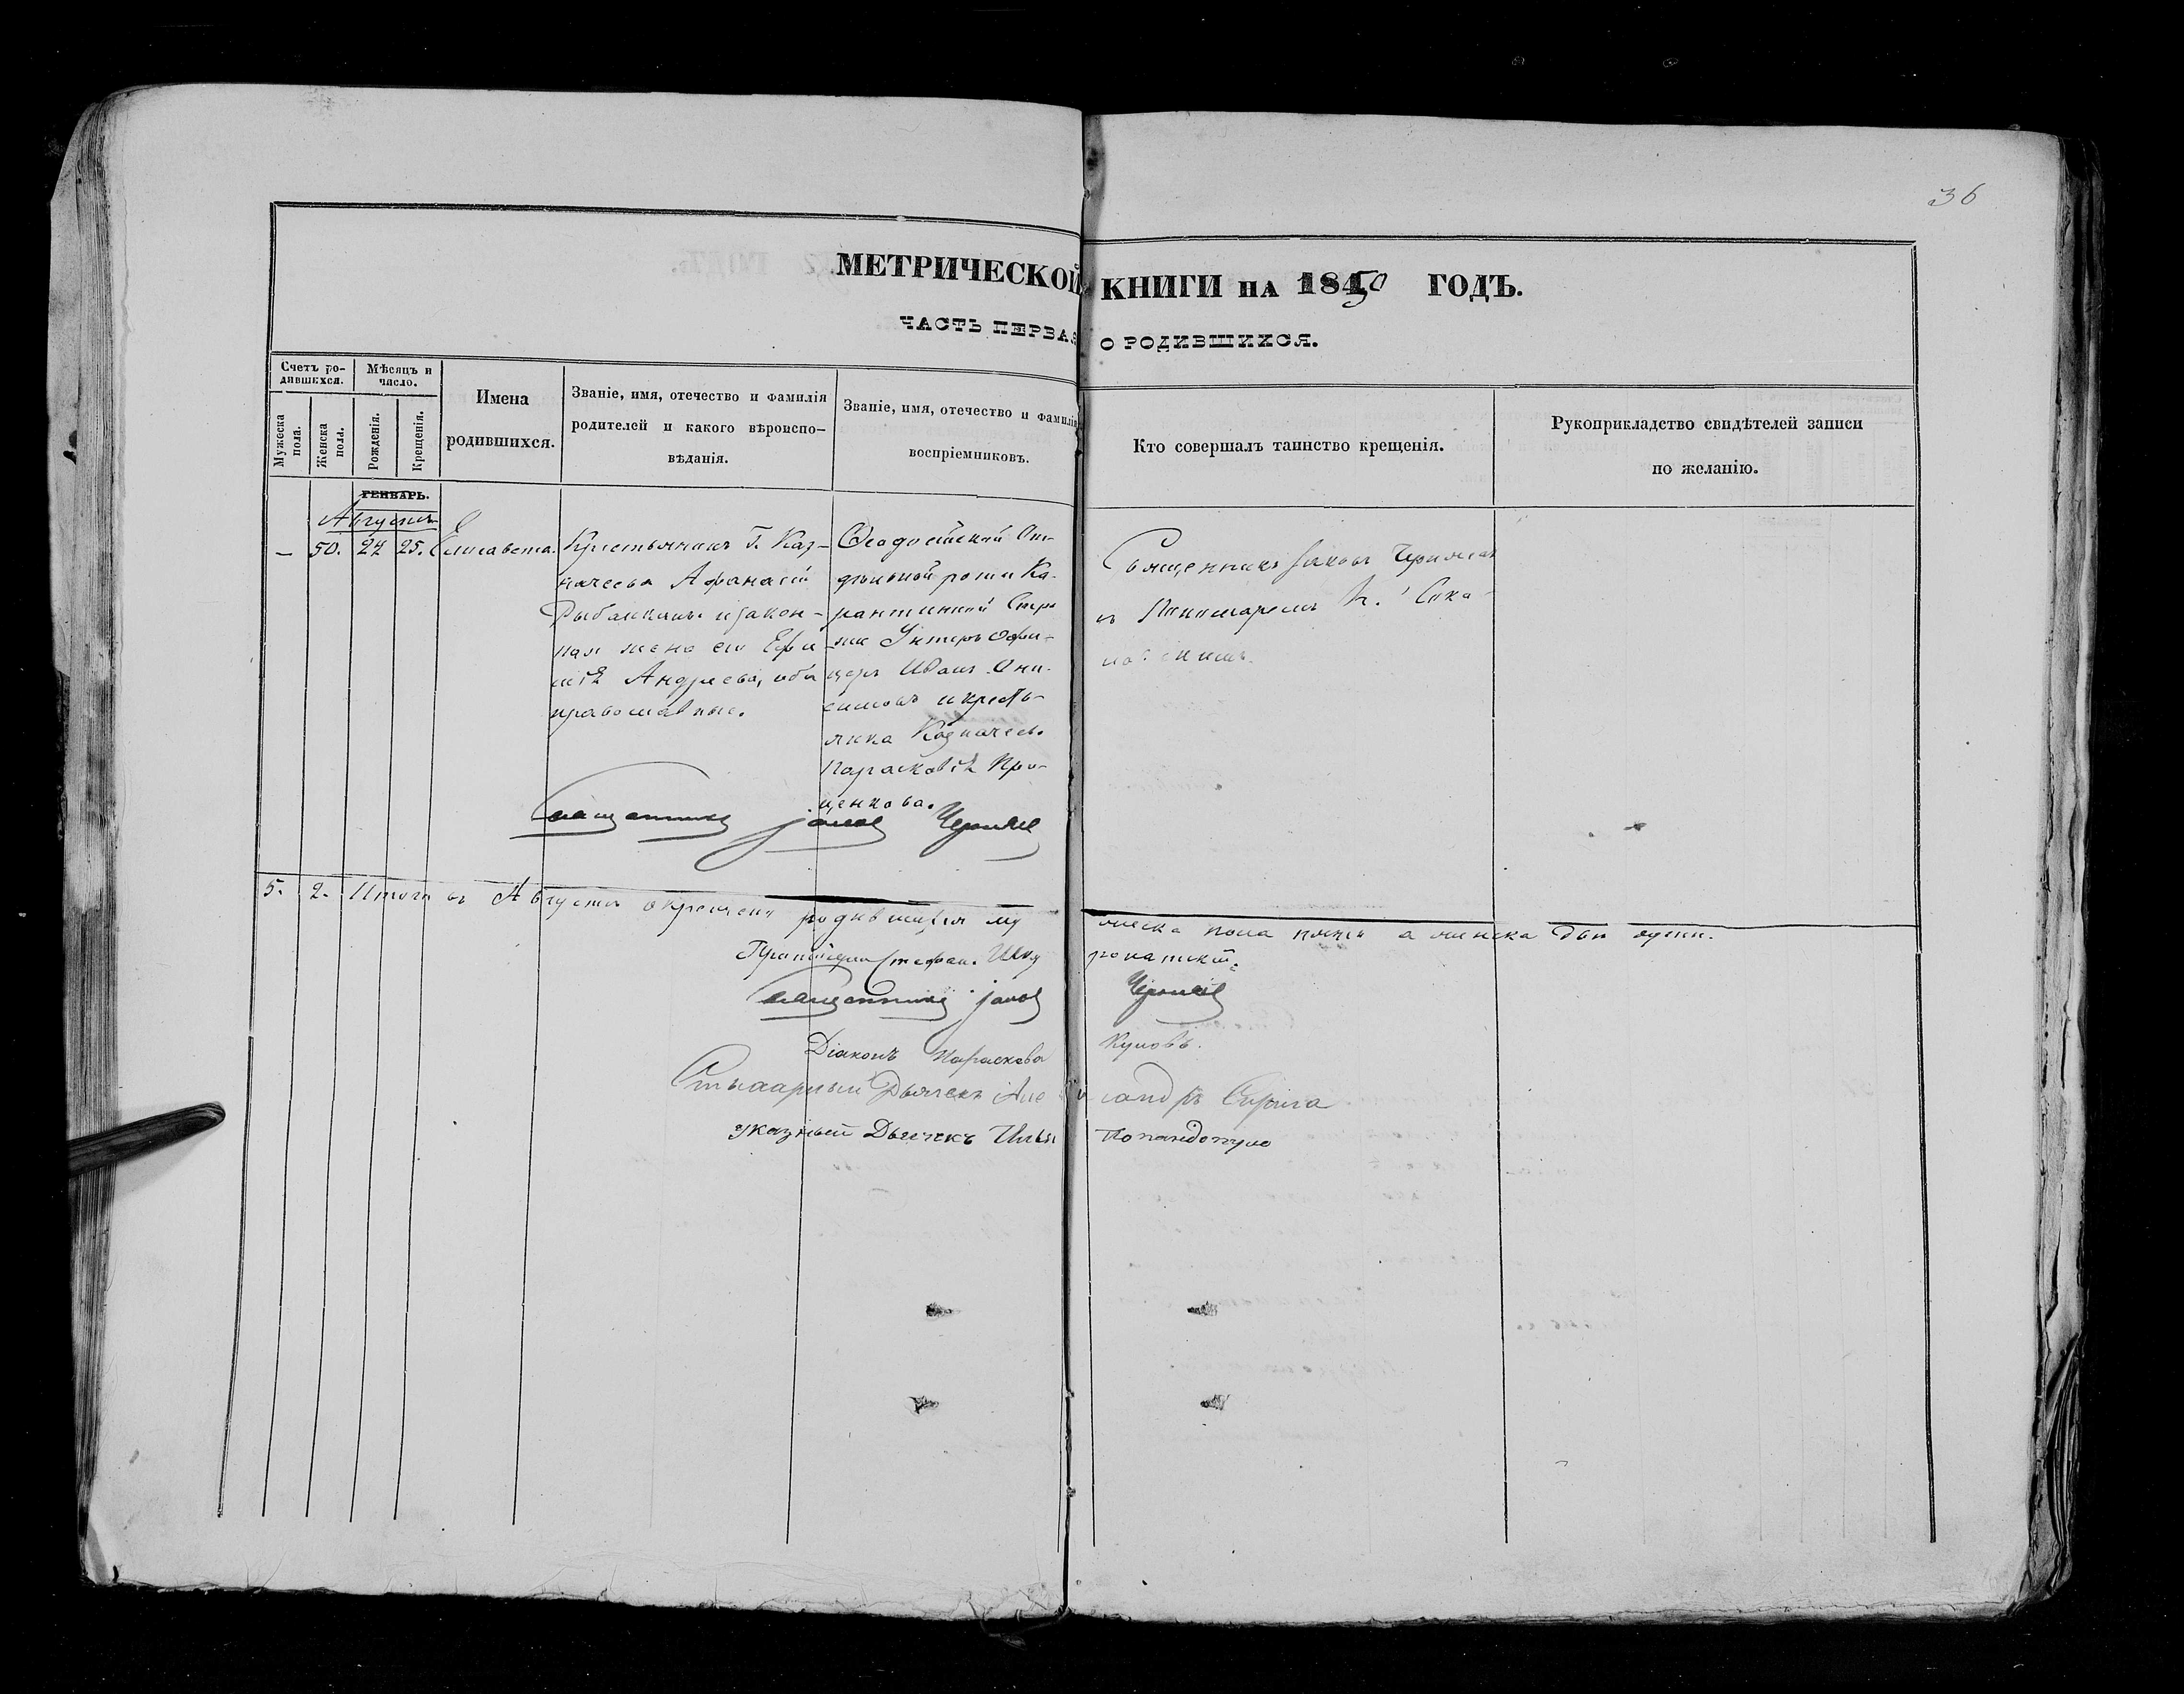 36
МЕТРИЧЕСКОЙ КНИГИ НА 1850 ГОДЪ.
ЧАСТЬ ПЕРВАЯ О РОДИВШИХСЯ.
Счетъ ро-
дившихся.
Мѣсяцъ и
число.
Мужеска
пола.
Женска
пола.
Рожденія.
Крещенія.
Имена
родившихся.
Званіе, имя, отечество и фамилія
родителей и какого вѣроиспо-
вѣданія.
Званіе, имя, отечество и фамилія
воспріемниковъ.
Кто совершалъ таинство крещенія.
Рукоприкладство свидѣтелей записи
по желанію.
ГЕНВАРЬ.
Августъ
— 50. 24 25. Елисавета.
Крестьянинъ Г. Каз-
начеева Афанасій
и закон-
ная жена его
Андреева, оба
православные.
Ѳеодосійской От-
дѣльной роты Ка-
рантинной Стра
жи Унтеръ Офи-
церъ Иванъ Они-
симовъ и кресть-
янка Казначеева
Параскевія Про-
ценкова.
Священникъ Іаковъ Чернявс
съ Пономаремъ
Священникъ Іаковъ
5. 2. Итого въ Августѣ окрещено родившихся му жеска пола а женска два
Протоіерей Стефанъ
Священникъ Іаковъ
Діаконъ Параскева Куповъ.
Дьячекъ Але ксандръ
указный Дьячекъ Илья Попандопуло